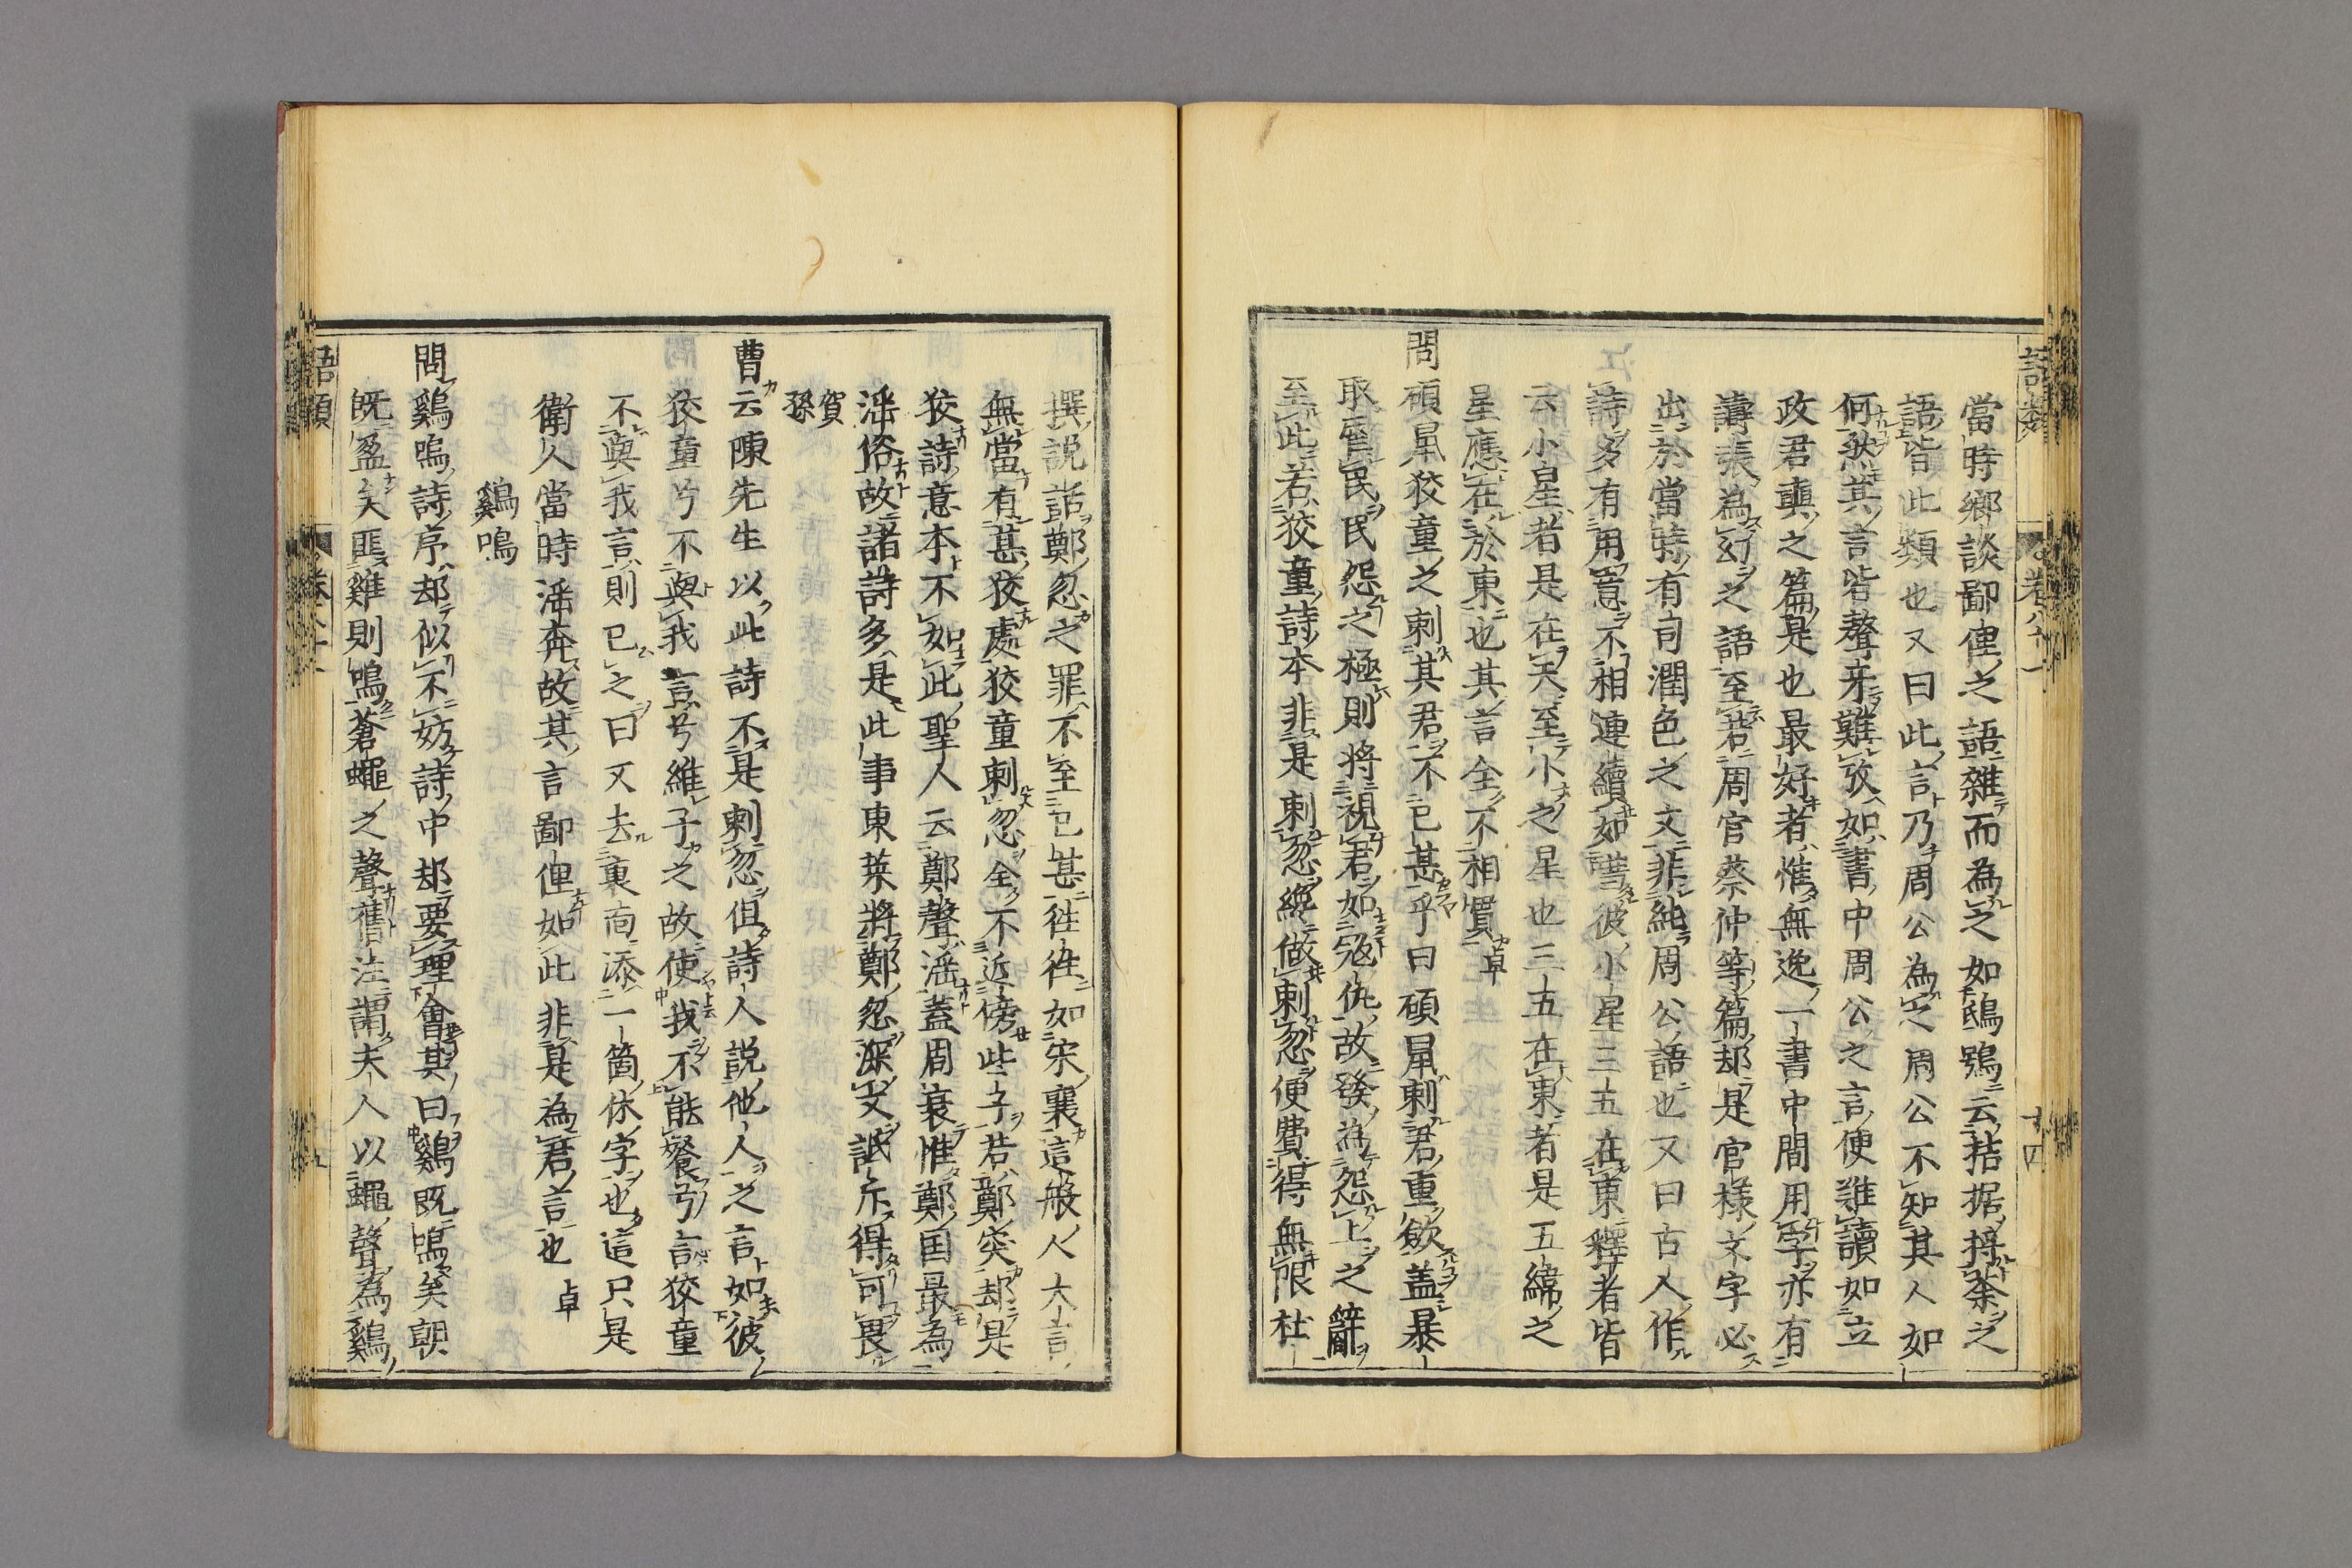 語類 卷八十一 十四
當時鄉談鄙俚之語雜而為之如鴟鴞云拮据捋荼之
語皆此類也又曰此言乃周公為之周公不知其人如
何然其言皆聱牙難攷如書中周公之言便難讀如立
政君奭之篇是也最好者惟無逸一書中間用字亦有
譸張為幻之語至若周官蔡仲等篇却是官樣文字必
出於當時有司潤色之文非純周公語也又曰古人作
詩多有用意不相連續如嘒彼小星三五在東釋者皆
云小星者是在天至小之星也三五在東者是五緯之
星應在於東也其言全不相貫卓
問碩鼠狡童之刺其君不已甚乎曰碩鼠刺君重歛蓋暴
取虐民民怨之極則將視君如寇仇故發為怨上之辭
至此若狡童詩本非是刺忽纔做刺忽便費得無限杜
撰說話鄭忽之罪不至已甚往往如宋襄這般人大言
無當有甚狡處狡童刺忽全不近傍些子若鄭突却是
狡詩意本不如此聖人云鄭聲淫蓋周衰惟鄭国最為
淫俗故諸詩多是此事東萊將鄭忽深文詆斥得可畏
賀孫
曹云陳先生以此詩不是刺忽但詩人說他人之言如彼
狡童兮不與我言兮維子之故使我不能餐兮言狡童
不與我言則已之曰又去裏面添一箇休字也這只是
衛人當時淫奔故其言鄙俚如此非是為君言也 卓
鷄鳴
問鷄鳴詩序却似不妨詩中却要理會其曰鷄既鳴矣朝
既盈矣匪雞則鳴蒼蠅之聲舊注謂夫人以蠅聲為鷄
語類